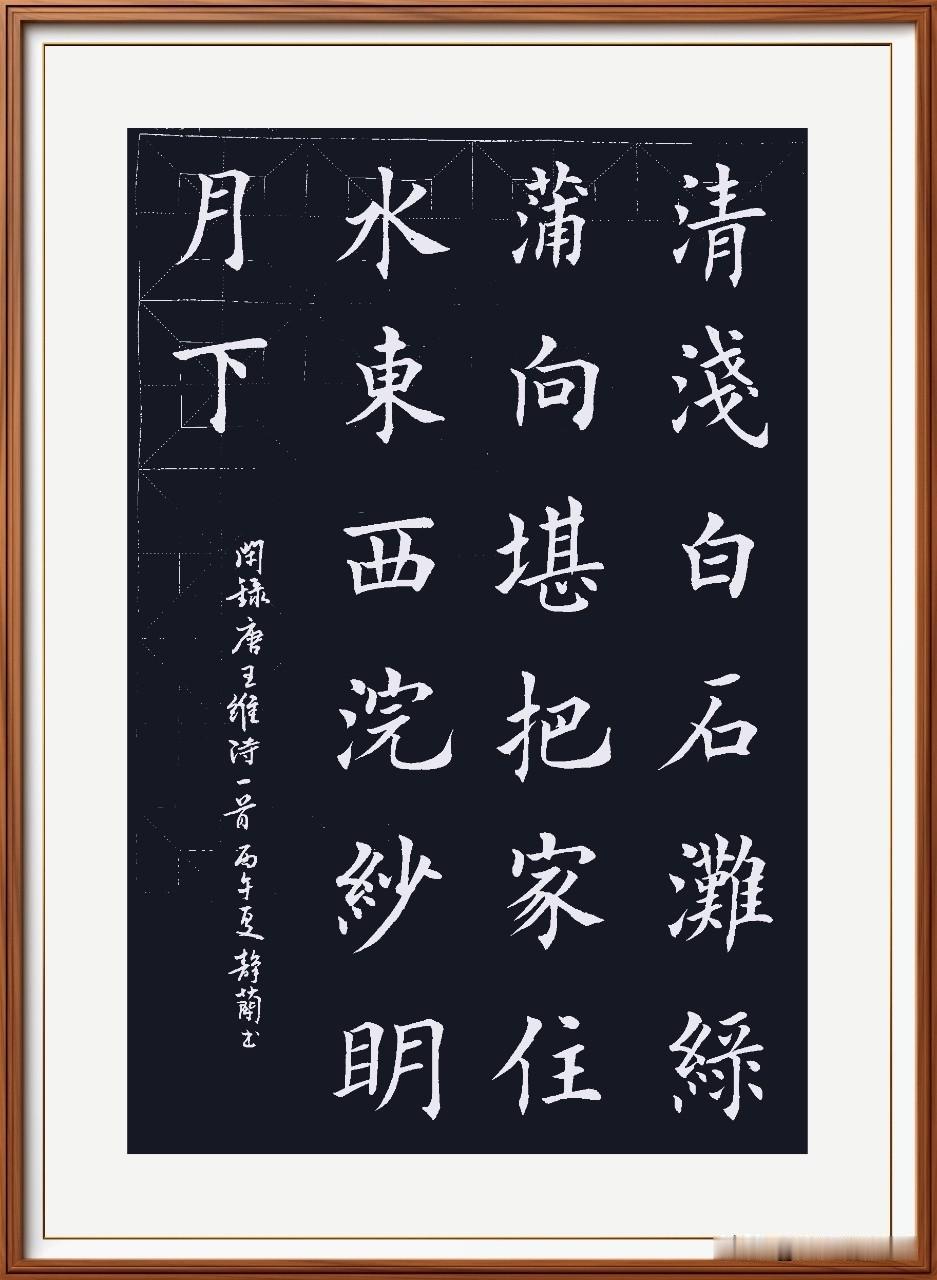 清淺白石灘綠
蒲向堪把家住
水東西浣紗眀
月下
閑録唐王維诗一首丙午夏靜蘭书